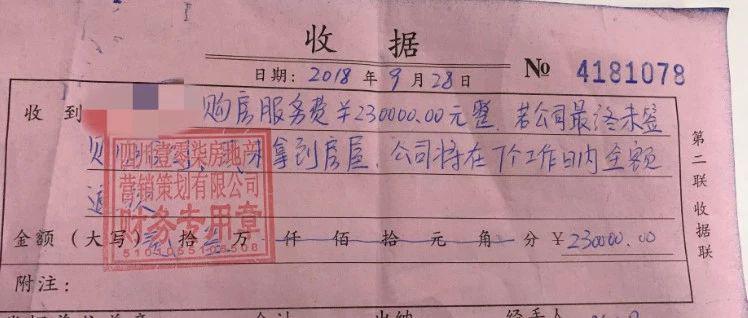 收据
日期: 2018 年 9 月 28 日 No 4181078
收到 购房服务费￥230000.00元整,若公司最终未签
购 未拿到房屋,公司将在7个工作日内全额
退
金额(大写) 贰 拾 叁 万 仟 佰 拾 元 角 分 ￥230000.00
附注:
第二联 收据联
四川壹零柒房地
营销策划有限公司
财务专用章
会计 出纳 经手人